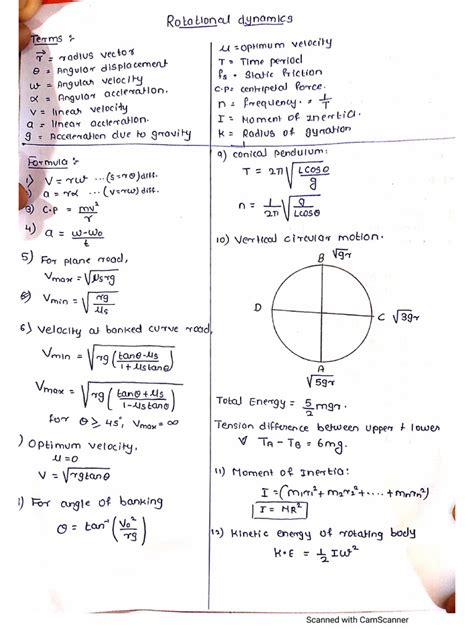 Rotational dynamics
Terms :-
r⃗ = radius vector
θ = Angular displacement
ω = Angular velocity
α = Angular accleration.
v = linear velocity
a = linear accleration.
g = Accleration due to gravity
μ = optimum velocity
T = Time period
fs = Static friction
C.P = centripetal force.
n = frequency. = 1/T
I = Moment of inertia.
K = Radius of gyration
Formula :-
1) V = rω ... (s = rθ) diff.
) a = rα ... (v = rω) diff.
3) C.P = mv²/r
4) a = ω-ω₀/t
5) For plane road,
Vmax = √μsrg
Vmin = √(rg/μs)
6) Velocity at banked curve road,
Vmin = √(rg(tanθ-μs/1+μstanθ))
Vmax = √(rg(tanθ+μs/1-μstanθ))
for θ ≥ 45°, Vmax = ∞
) Optimum velocity,
μ = 0
V = √rgtanθ
) For angle of banking
θ = tan⁻¹(V₀²/rg)
9) conical pendulum:
T = 2π√(Lcosθ/g)
n = 1/2π √(g/Lcosθ)
10) Vertical circular motion.
B √gr
D
C √3gr
A
√5gr
Total Energy = 5/2 mgr.
Tension difference between upper & lower
TA - TB = 6mg.
11) Moment of Inertia:
I = (m₁r₁² + m₂r₂² + .... + mnrn²)
I = MR²
12) Kinetic energy of rotating body
K.E = 1/2 Iω²
Scanned with CamScanner